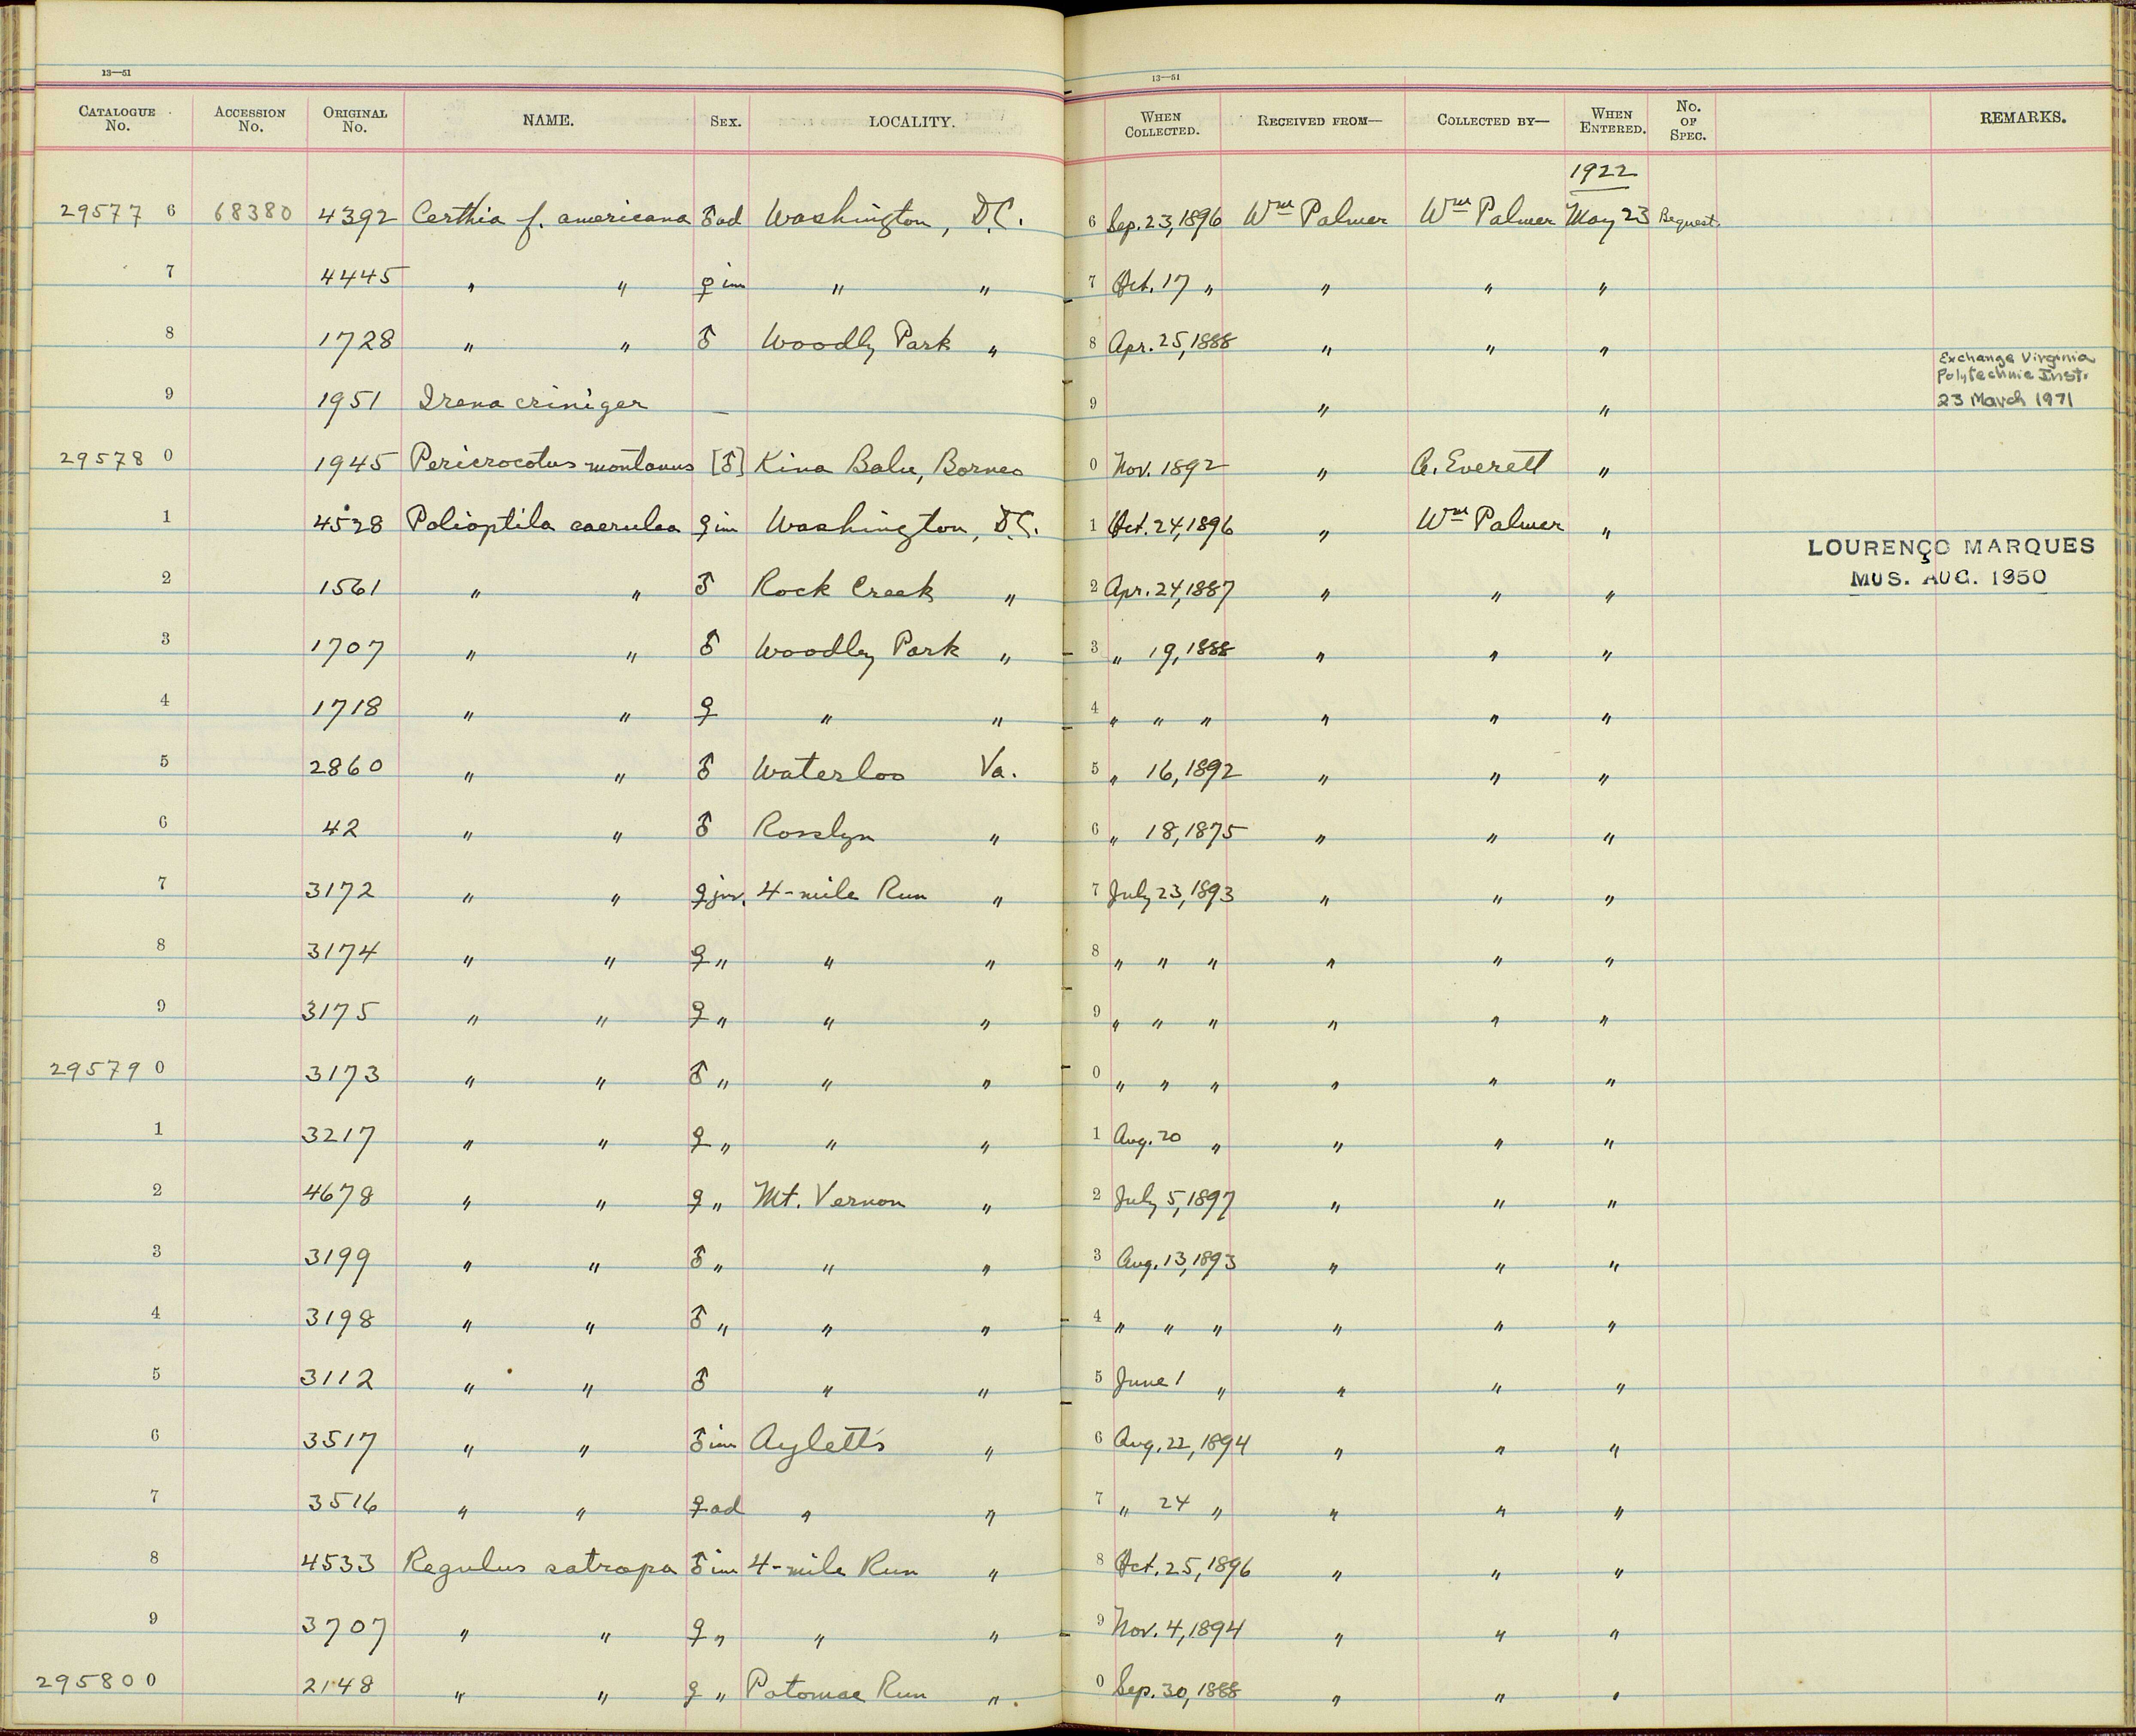 13—51 13—51
CATALOGUE No. ACCESSION No. ORIGINAL No. NAME. SEX. LOCALITY. WHEN COLLECTED. RECEIVED FROM— COLLECTED BY— WHEN ENTERED. No. OF SPEC. REMARKS.
1922
29577 6 68380 4392 Certhia f. americana ♂ ad Washington, D.C. 6 Sep. 23, 1896 Wm Palmer Wm Palmer May 23 Bequest.
7 4445 " " ♀ im " " 7 Oct. 17 " " " "
8 1728 " " ♂ Woodly Park " 8 Apr. 25, 1888 " " "
Exchange Virginia
Polytechnic Inst.
23 March 1971
9 1951 Irena criniger — 9 " "
29578 0 1945 Pericrocotus montanus [♂] Kina Balu, Borneo 0 Nov. 1892 " A. Everett "
1 4528 Polioptila caerulea ♀ im Washington, D.C. 1 Oct. 24, 1896 " Wm Palmer "
LOURENÇO MARQUES
MUS. AUG. 1950
2 1561 " " ♂ Rock Creek " 2 Apr. 24, 1887 " " "
3 1707 " " ♂ Woodley Park " 3 " 19, 1888 " " "
4 1718 " " ♀ " " 4 " " " " " "
5 2860 " " ♂ Waterloo Va. 5 " 16, 1892 " " "
6 42 " " ♂ Rosslyn " 6 " 18, 1875 " " "
7 3172 " " ♀ juv. 4-mile Run " 7 July 23, 1893 " " "
8 3174 " " ♀ " " " 8 " " " " " "
9 3175 " " ♀ " " " 9 " " " " " "
29579 0 3173 " " ♂ " " " 0 " " " " " "
1 3217 " " ♀ " " " 1 Aug. 20 " " " "
2 4678 " " ♀ " Mt. Vernon " 2 July 5, 1897 " " "
3 3199 " " ♂ " " " 3 Aug. 13, 1893 " " "
4 3198 " " ♂ " " " 4 " " " " " "
5 3112 " " ♂ " " 5 June 1 " " " "
6 3517 " " ♂ im Ayletts " 6 Aug. 22, 1894 " " "
7 3516 " " ♀ ad " " 7 " 24 " " " "
8 4533 Regulus satrapa ♂ im 4-mile Run " 8 Oct. 25, 1896 " " "
9 3707 " " ♀ " " " 9 Nov. 4, 1894 " " "
29580 0 2148 " " ♀ " Potomac Run " 0 Sep. 30, 1888 " " "